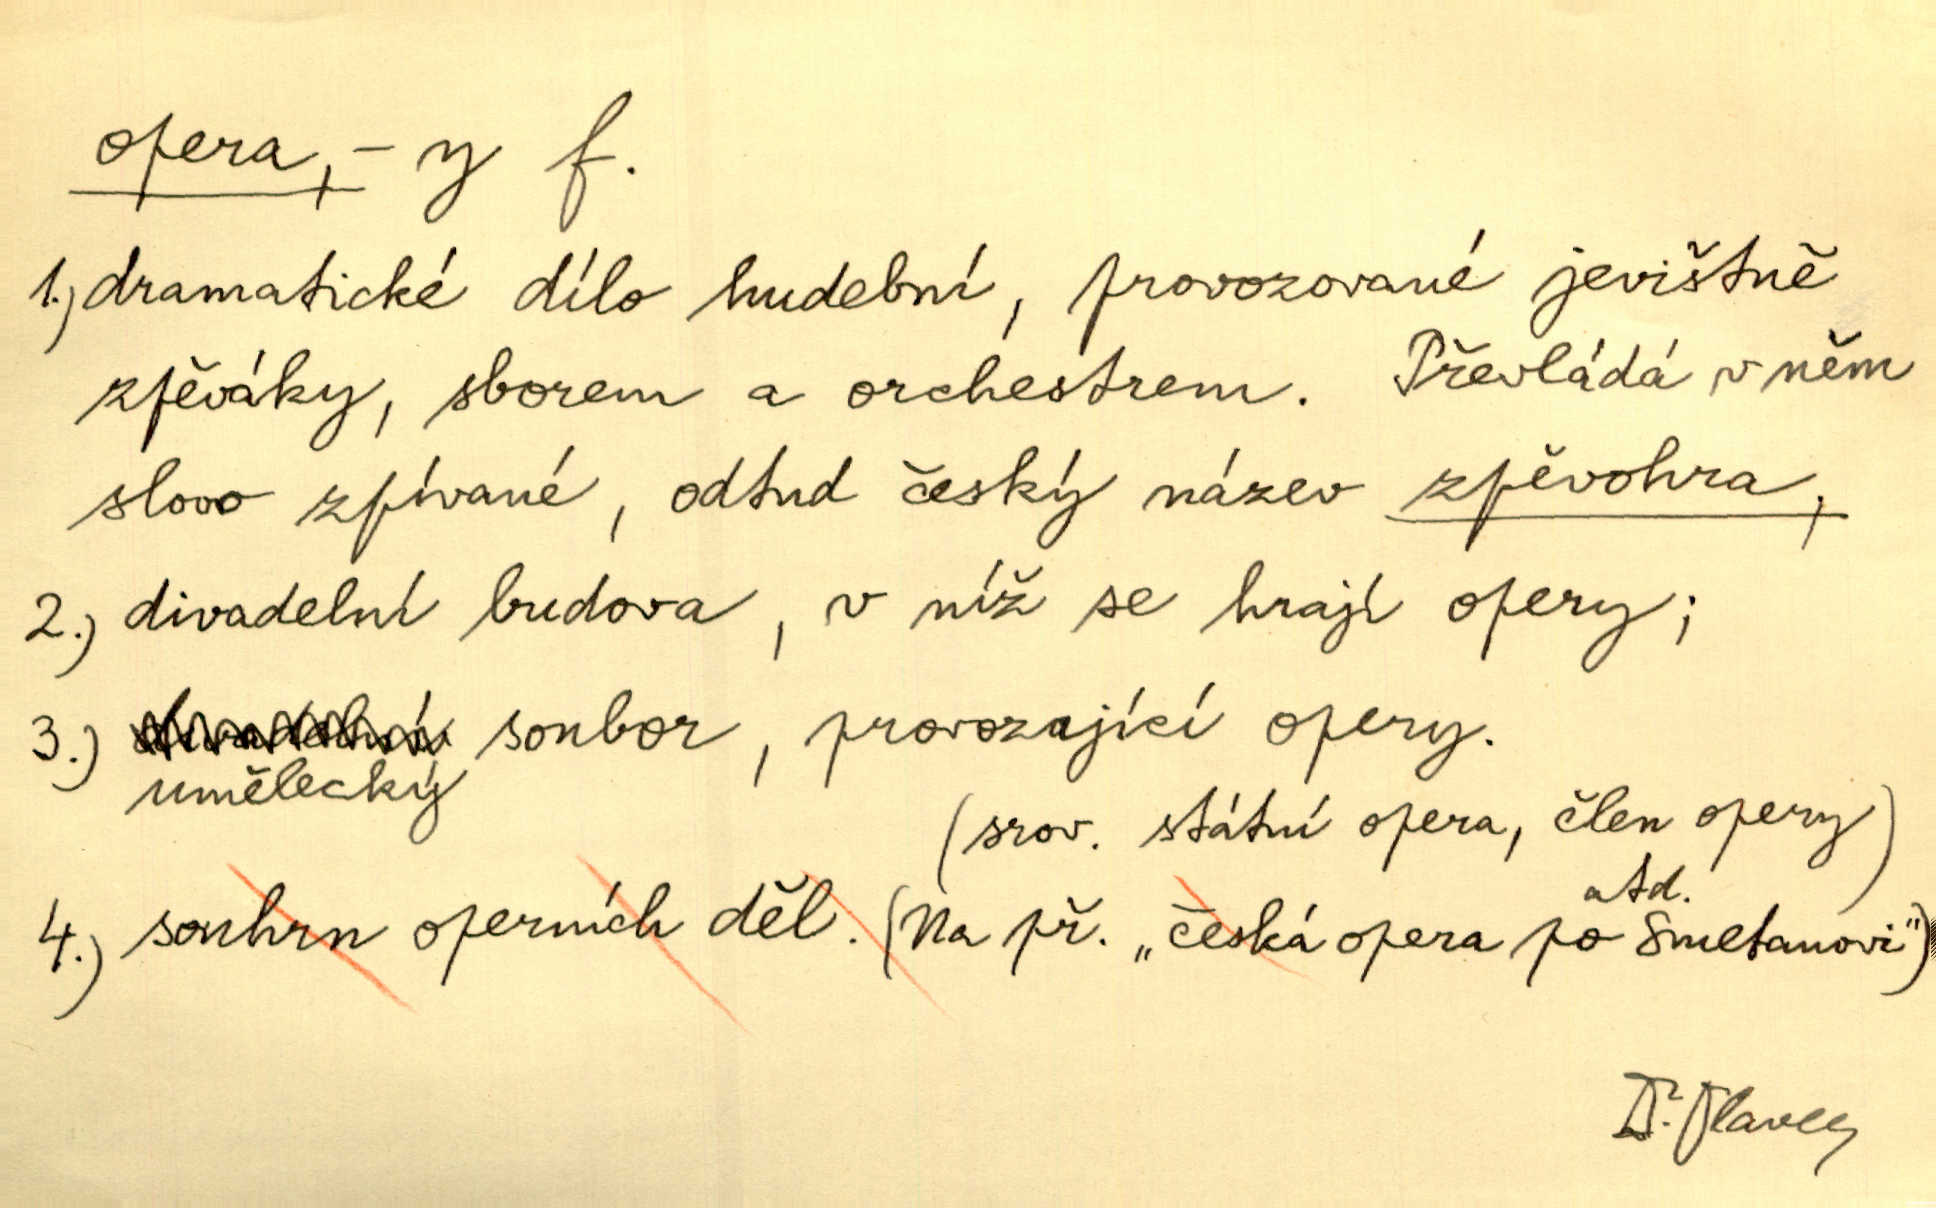 opera, -y f.
1.) dramatické dílo hudební, provozované jevištně
zpěváky, sborem a orchestrem. Převládá v něm
slovo zpívané, odtud český název zpěvohra,
2.) divadelní budova, v níž se hrají opery;
3.) divadelní soubor, provozující opery.
umělecký
(srov. státní opera, člen opery)
atd.
4.) souhrn operních děl. (Na př. „česká opera po Smetanovi")
Dr.